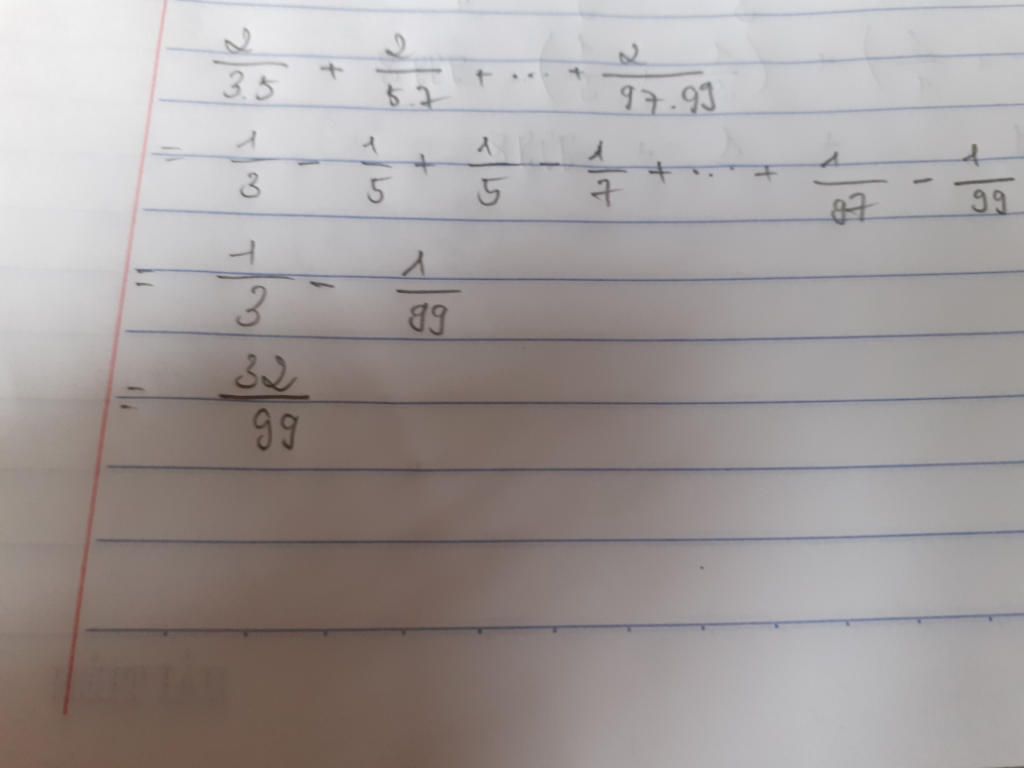 2/3.5 + 2/5.7 + ... + 2/97.99
= 1/3 - 1/5 + 1/5 - 1/7 + ... + 1/97 - 1/99
= 1/3 - 1/99
= 32/99